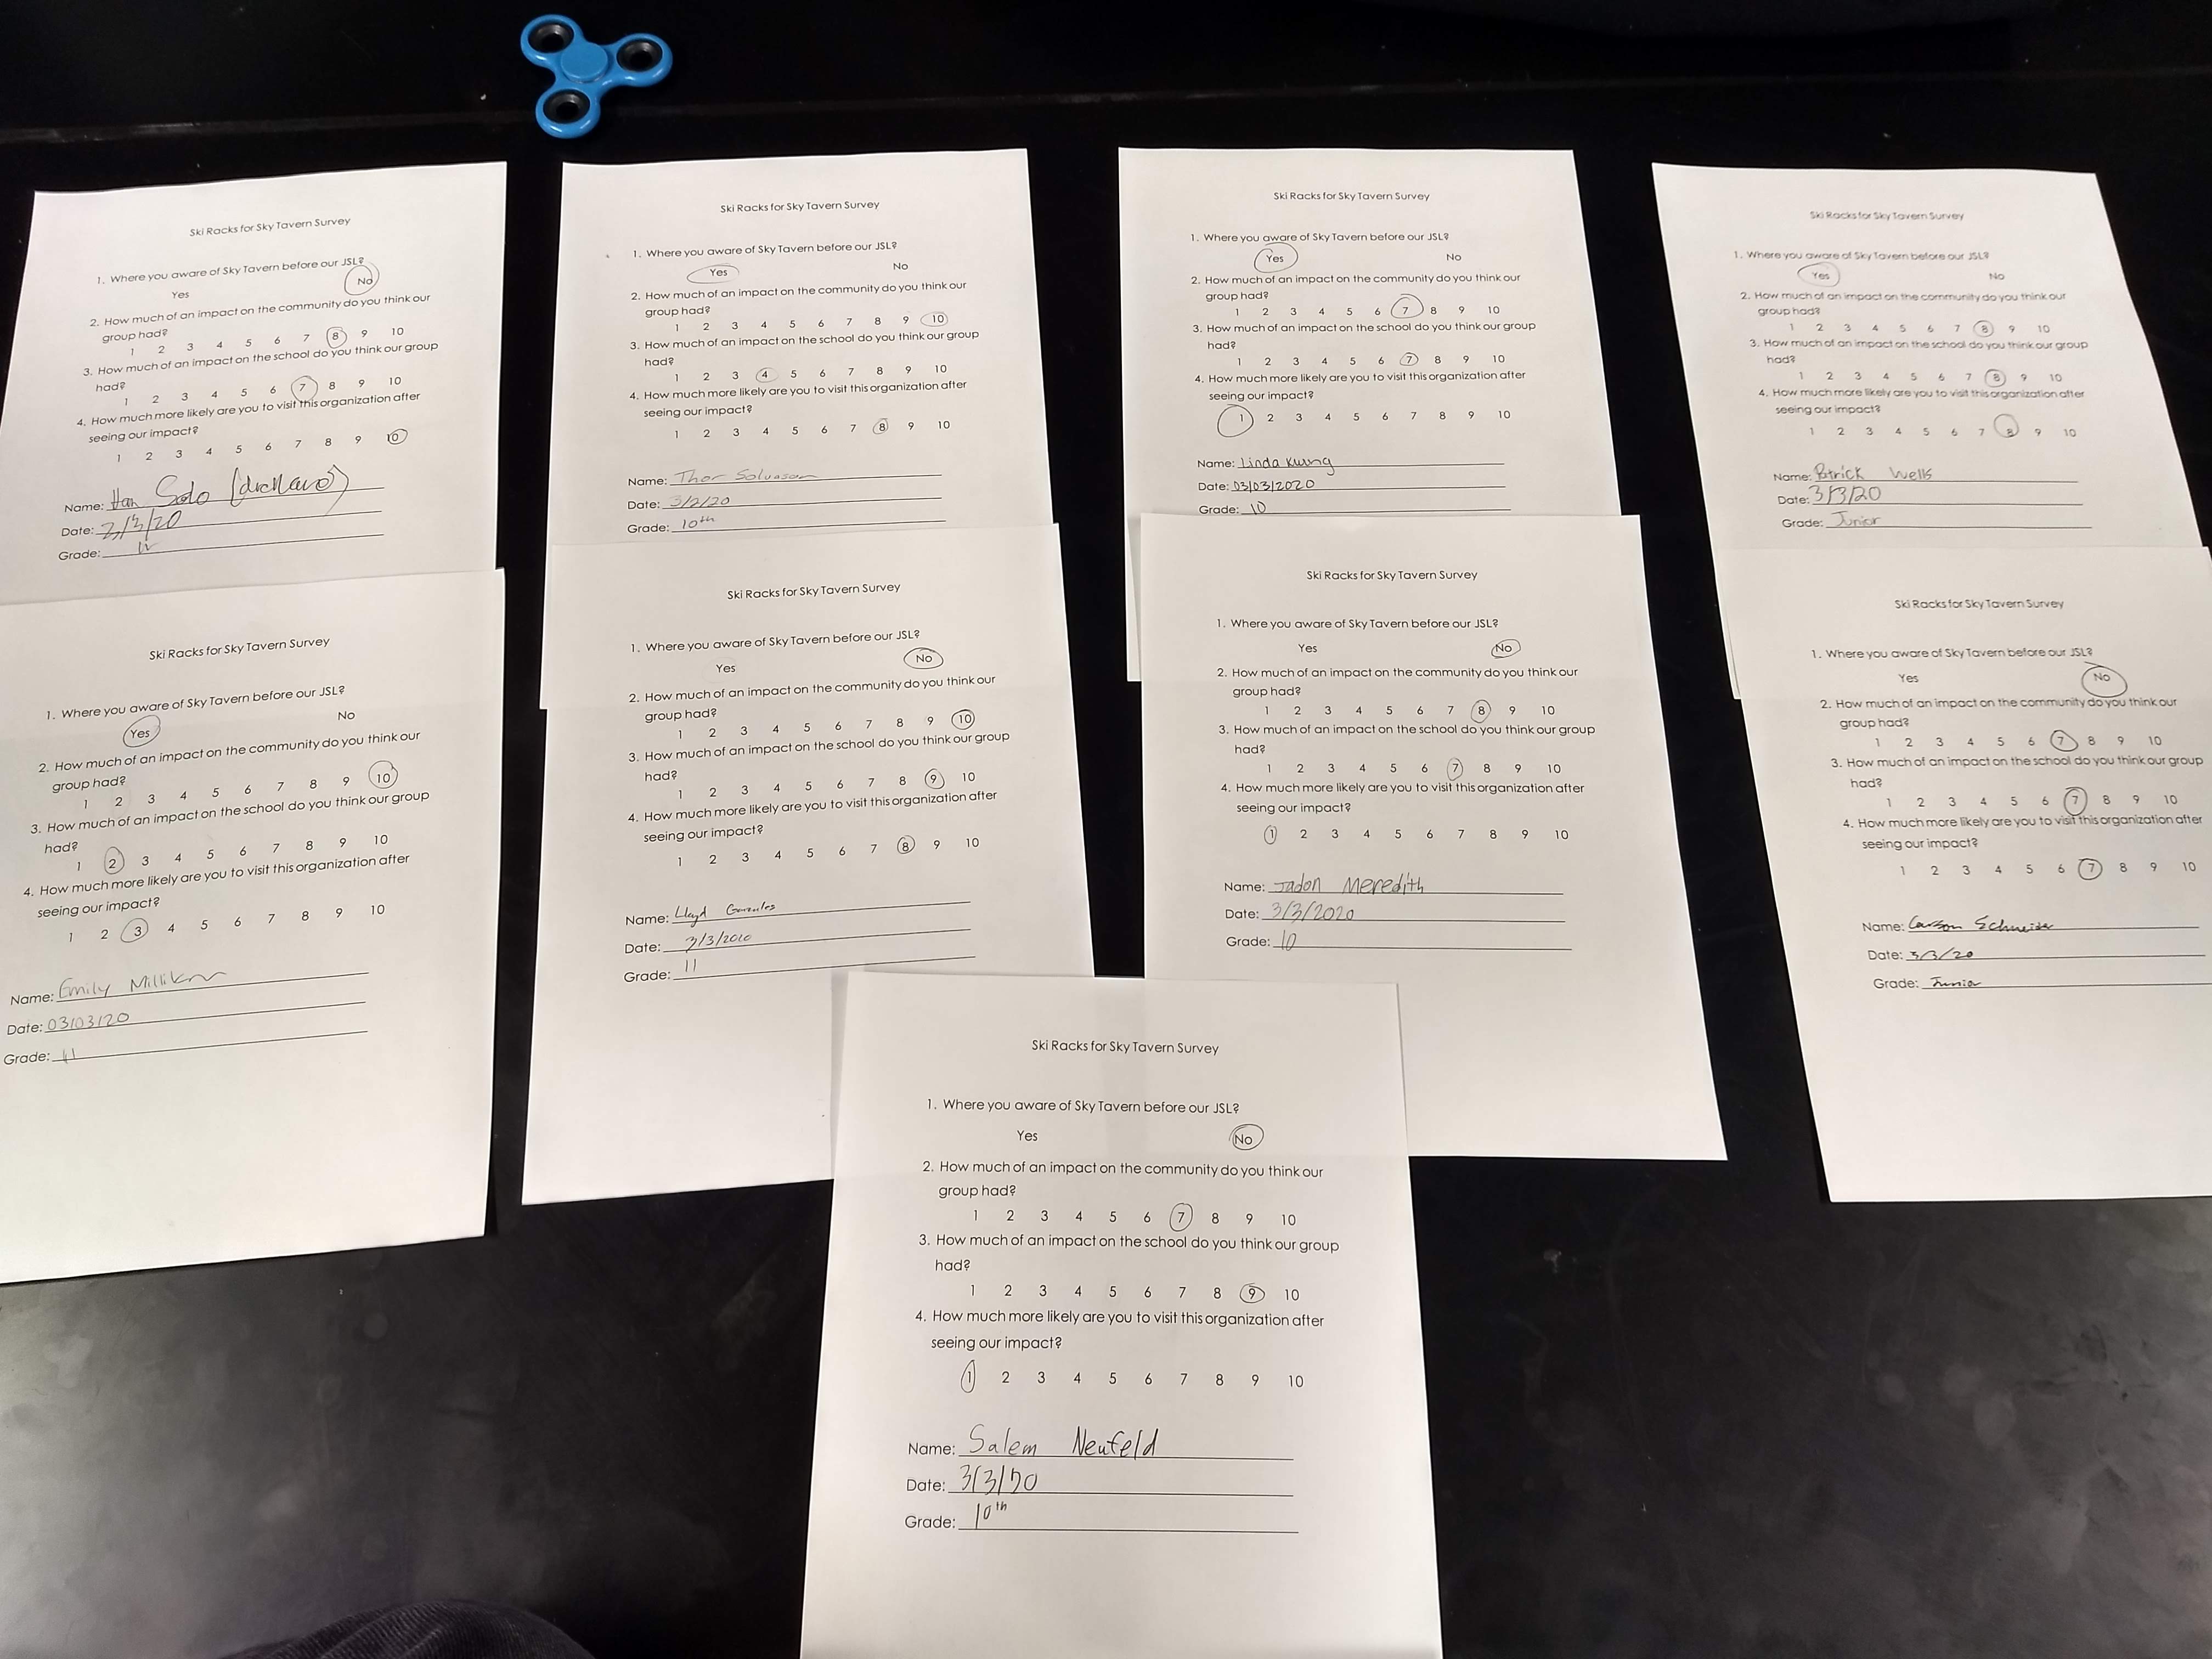 Ski Racks for Sky Tavern Survey
1. Where you aware of Sky Tavern before our JSL?
Yes No
2. How much of an impact on the community do you think our
group had?
1 2 3 4 5 6 7 8 9 10
3. How much of an impact on the school do you think our group
had?
1 2 3 4 5 6 7 8 9 10
4. How much more likely are you to visit this organization after
seeing our impact?
1 2 3 4 5 6 7 8 9 10
Name: Han Solo
Date: 2/3/20
Grade:
Ski Racks for Sky Tavern Survey
1. Where you aware of Sky Tavern before our JSL?
Yes No
2. How much of an impact on the community do you think our
group had?
1 2 3 4 5 6 7 8 9 10
3. How much of an impact on the school do you think our group
had?
1 2 3 4 5 6 7 8 9 10
4. How much more likely are you to visit this organization after
seeing our impact?
1 2 3 4 5 6 7 8 9 10
Name: Thor
Date: 3/2/20
Grade: 10th
Ski Racks for Sky Tavern Survey
1. Where you aware of Sky Tavern before our JSL?
Yes No
2. How much of an impact on the community do you think our
group had?
1 2 3 4 5 6 7 8 9 10
3. How much of an impact on the school do you think our group
had?
1 2 3 4 5 6 7 8 9 10
4. How much more likely are you to visit this organization after
seeing our impact?
1 2 3 4 5 6 7 8 9 10
Name: Linda Kung
Date: 03/03/2020
Grade: 10
Ski Racks for Sky Tavern Survey
1. Where you aware of Sky Tavern before our JSL?
Yes No
2. How much of an impact on the community do you think our
group had?
1 2 3 4 5 6 7 8 9 10
3. How much of an impact on the school do you think our group
had?
1 2 3 4 5 6 7 8 9 10
4. How much more likely are you to visit this organization after
seeing our impact?
1 2 3 4 5 6 7 8 9 10
Name: Patrick Wells
Date: 3/3/20
Grade: Junior
Ski Racks for Sky Tavern Survey
1. Where you aware of Sky Tavern before our JSL?
Yes No
2. How much of an impact on the community do you think our
group had?
1 2 3 4 5 6 7 8 9 10
3. How much of an impact on the school do you think our group
had?
1 2 3 4 5 6 7 8 9 10
4. How much more likely are you to visit this organization after
seeing our impact?
1 2 3 4 5 6 7 8 9 10
Name: Emily
Date: 03/03/20
Grade: 11
Ski Racks for Sky Tavern Survey
1. Where you aware of Sky Tavern before our JSL?
Yes No
2. How much of an impact on the community do you think our
group had?
1 2 3 4 5 6 7 8 9 10
3. How much of an impact on the school do you think our group
had?
1 2 3 4 5 6 7 8 9 10
4. How much more likely are you to visit this organization after
seeing our impact?
1 2 3 4 5 6 7 8 9 10
Name: Lloyd Gonzales
Date: 3/3/2020
Grade: 11
Ski Racks for Sky Tavern Survey
1. Where you aware of Sky Tavern before our JSL?
Yes No
2. How much of an impact on the community do you think our
group had?
1 2 3 4 5 6 7 8 9 10
3. How much of an impact on the school do you think our group
had?
1 2 3 4 5 6 7 8 9 10
4. How much more likely are you to visit this organization after
seeing our impact?
1 2 3 4 5 6 7 8 9 10
Name: Jadon Meredith
Date: 3/3/2020
Grade: 10
Ski Racks for Sky Tavern Survey
1. Where you aware of Sky Tavern before our JSL?
Yes No
2. How much of an impact on the community do you think our
group had?
1 2 3 4 5 6 7 8 9 10
3. How much of an impact on the school do you think our group
had?
1 2 3 4 5 6 7 8 9 10
4. How much more likely are you to visit this organization after
seeing our impact?
1 2 3 4 5 6 7 8 9 10
Name: Carson Schneider
Date: 3/3/20
Grade: Junior
Ski Racks for Sky Tavern Survey
1. Where you aware of Sky Tavern before our JSL?
Yes No
2. How much of an impact on the community do you think our
group had?
1 2 3 4 5 6 7 8 9 10
3. How much of an impact on the school do you think our group
had?
1 2 3 4 5 6 7 8 9 10
4. How much more likely are you to visit this organization after
seeing our impact?
1 2 3 4 5 6 7 8 9 10
Name: Salem Neufeld
Date: 3/3/20
Grade: 10th